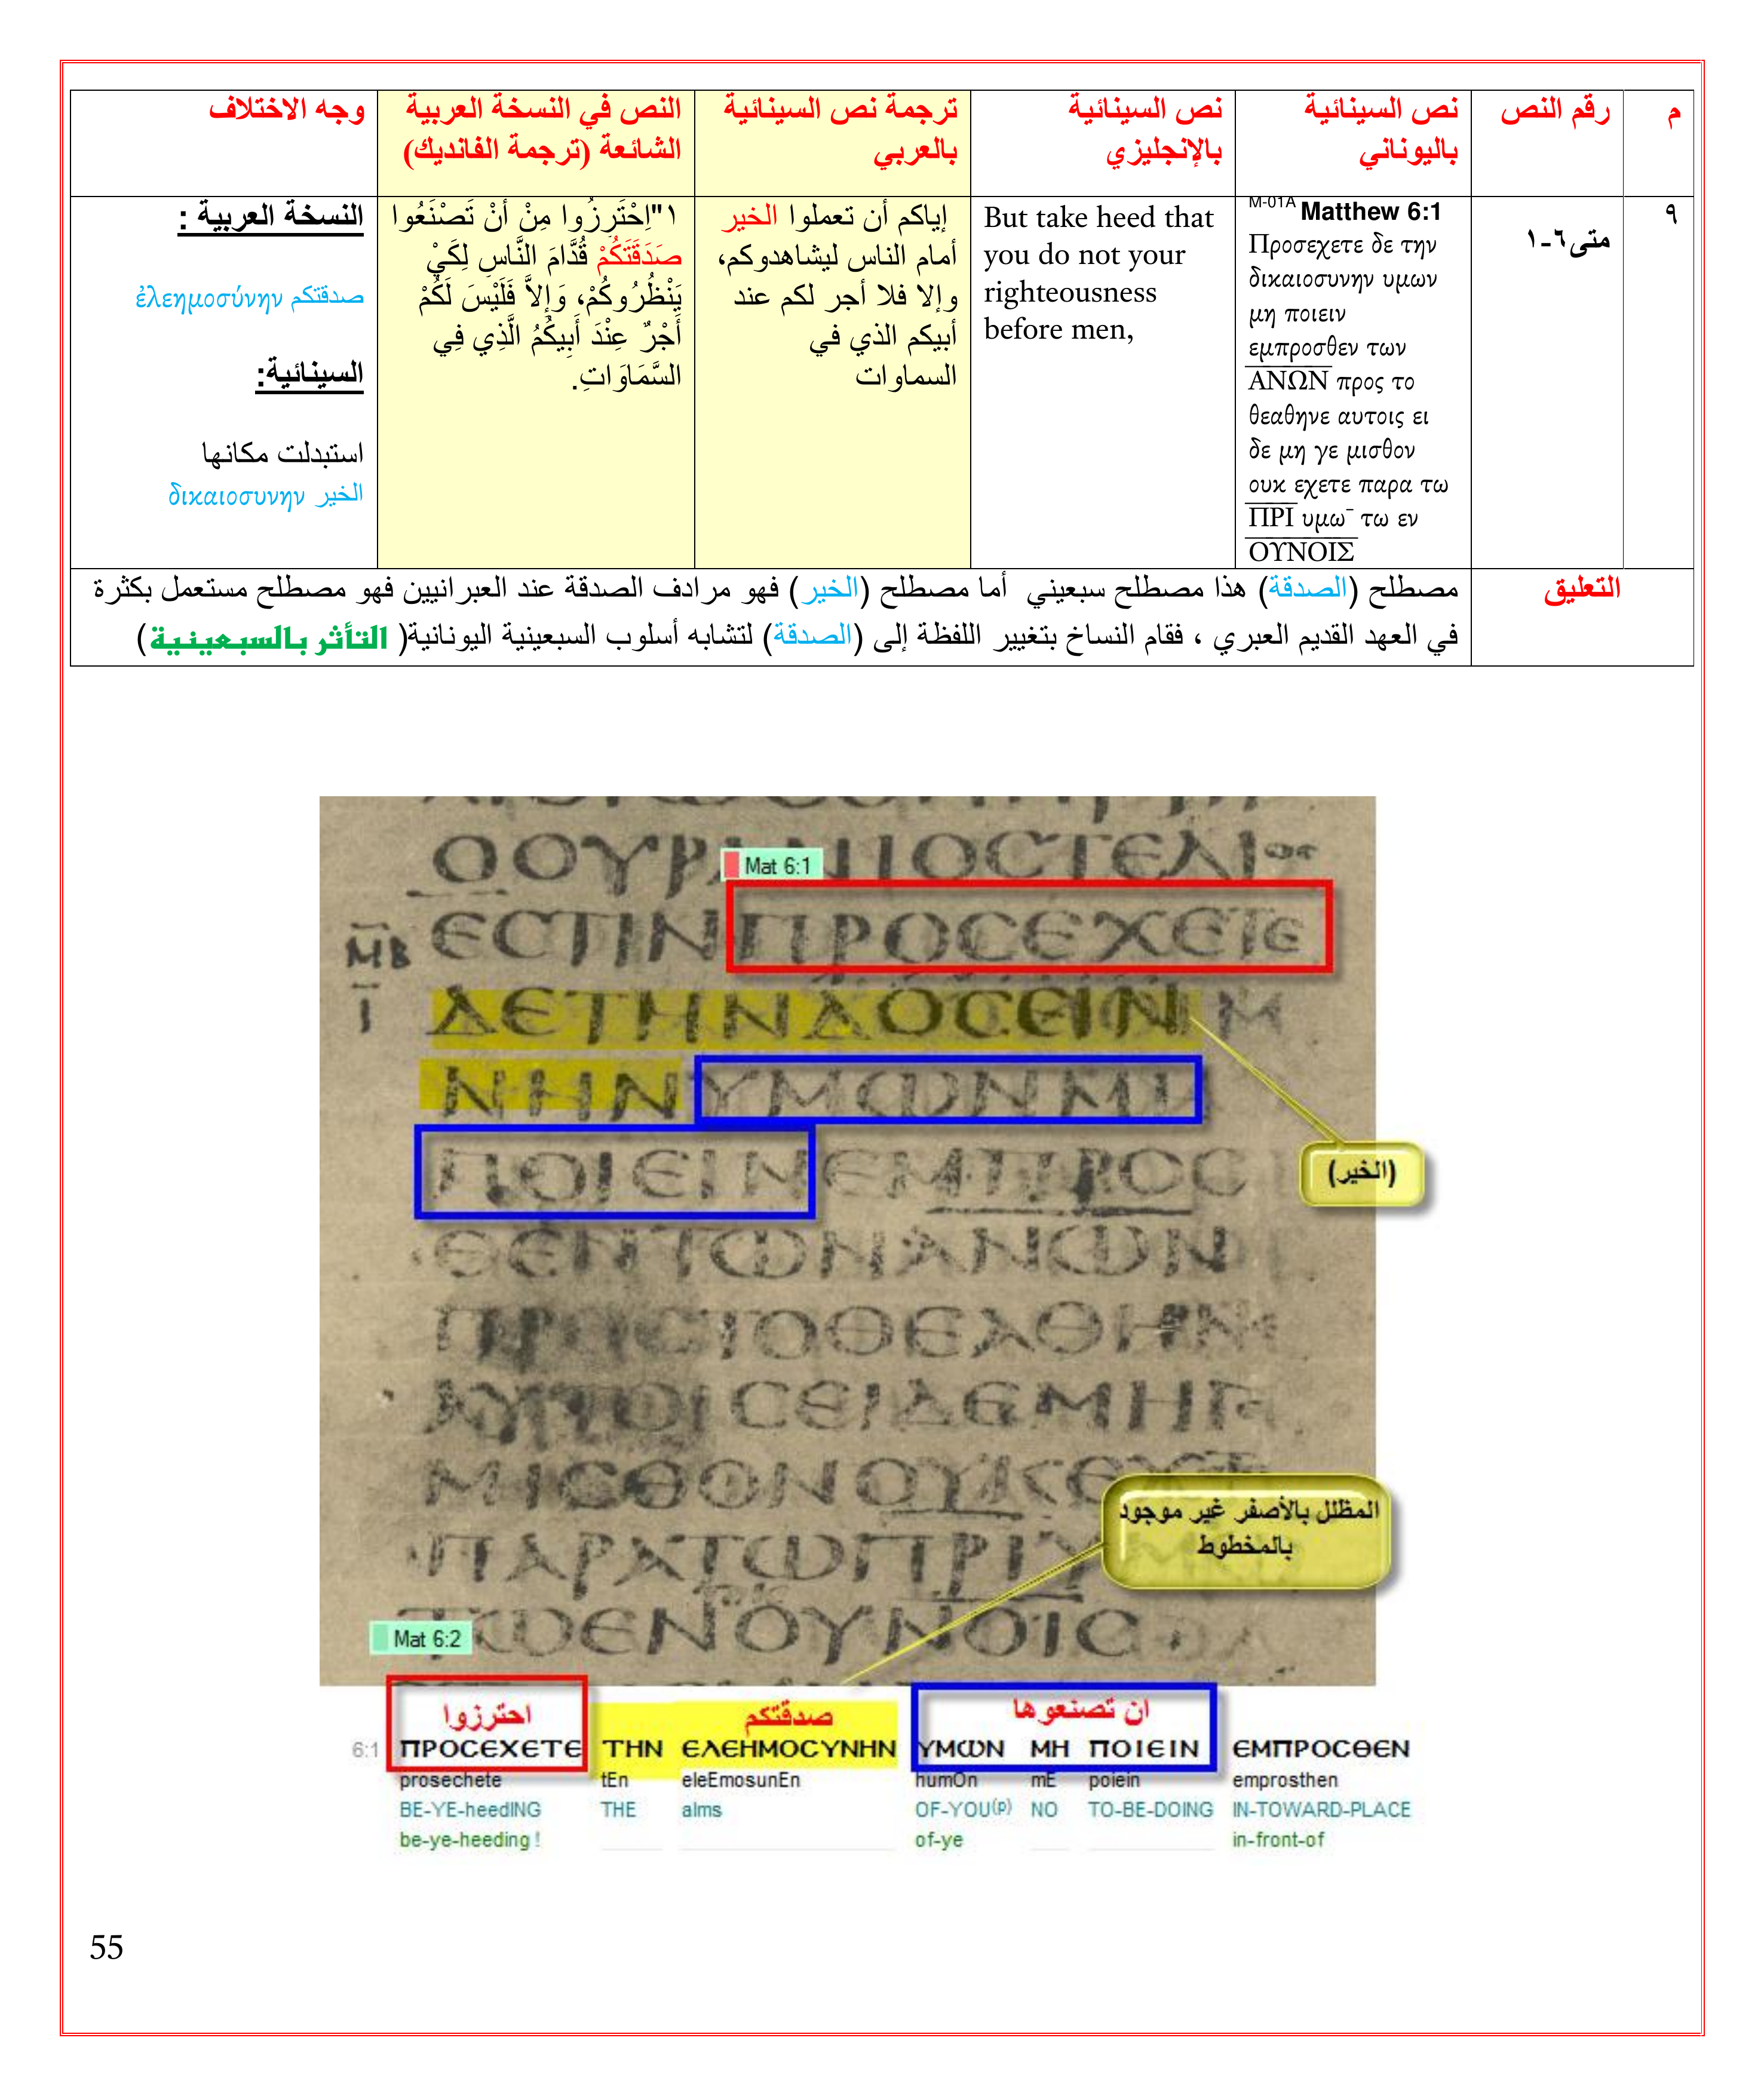 م
رقم النص
نص السينائية
باليوناني
نص السينائية
بالإنجليزي
ترجمة نص السينائية
بالعربي
النص في النسخة العربية
الشائعة (ترجمة الفانديك)
وجه الاختلاف
٩
متى٦-١
M-01A Matthew 6:1
Προσεχετε δε την
δικαιοσυνην υμων
μη ποιειν
εμπροσθεν των
ΑΝΩΝ προς το
θεαθηνε αυτοις ει
δε μη γε μισθον
ουκ εχετε παρα τω
ΠΡΙ υμω¯ τω εν
ΟΥΝΟΙΣ
But take heed that
you do not your
righteousness
before men,
إياكم أن تعملوا الخير
أمام الناس ليشاهدوكم،
وإلا فلا أجر لكم عند
أبيكم الذي في
السماوات
١"اِحْتَرِزُوا مِنْ أَنْ تَصْنَعُوا
صَدَقَتَكُمْ قُدَّامَ النَّاسِ لِكَيْ
يَنْظُرُوكُمْ، وَإِلاَّ فَلَيْسَ لَكُمْ
أَجْرٌ عِنْدَ أَبِيكُمُ الَّذِي فِي
السَّمَاوَاتِ.
النسخة العربية :
صدقتكم ἐλεημοσύνην
السينائية:
استبدلت مكانها
الخير δικαιοσυνην
التعليق
مصطلح (الصدقة) هذا مصطلح سبعيني أما مصطلح (الخير) فهو مرادف الصدقة عند العبرانيين فهو مصطلح مستعمل بكثرة
في العهد القديم العبري ، فقام النساخ بتغيير اللفظة إلى (الصدقة) لتشابه أسلوب السبعينية اليونانية( التأثر بالسبعينية)
Mat 6:1
ΕCΤΙΝΠΡΟCΕΧΕΤΕ
ΜΒ
Ι
ΝΗΝΥΜΩΝΜΗ
ΠΟΙΕΙΝΕΜΠΡΟC
(الخير)
ΘΕΝΤΩΝΑΝΩΝ
ΠΡΟCΤΟΘΕΑΘΗΝΕ
ΑΥΤΟΙCΕΙΔΕΜΗΓΕ
ΜΙCΘΟΝΟΥΚΕΧΕΤΕ
المظلل بالأصفر غير موجود
بالمخطوط
ΠΑΡΑΤΩΠΡΙΥ
Mat 6:2
ΤΩΕΝΟΥΝΟΙC
احترزوا
صدقتكم
ان تصنعوها
6:1 ΠΡΟCΕΧΕΤΕ ΤΗΝ ΕΛΕΗΜΟCΥΝΗΝ ΥΜΩΝ ΜΗ ΠΟΙΕΙΝ ΕΜΠΡΟCΘΕΝ
prosechete tEn eleEmosunEn humOn mE poiein emprosthen
BE-YE-heedING THE alms OF-YOU(p) NO TO-BE-DOING IN-TOWARD-PLACE
be-ye-heeding ! of-ye in-front-of
55